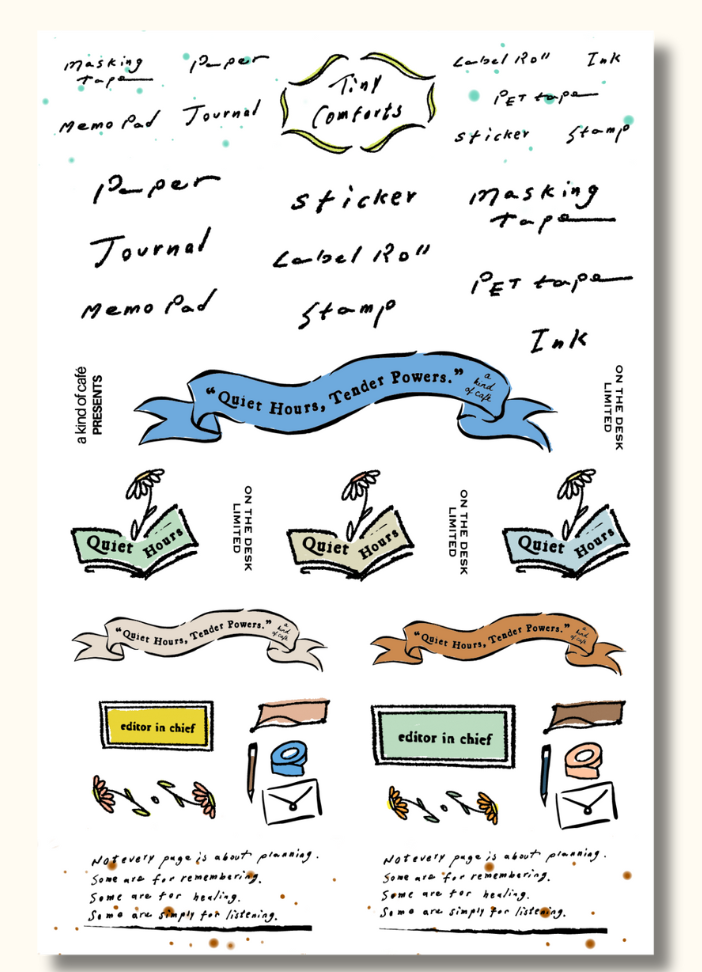 Masking
tape
Paper
Memo Pad
Journal
Tiny
Comforts
Label Roll
Ink
PET tape
sticker
Stamp
Paper
sticker
Masking
tape
Journal
Label Roll
PET tape
Memo Pad
Stamp
Ink
a kind of café
PRESENTS
“Quiet Hours, Tender Powers.”
a
kind
of café
ON THE DESK
LIMITED
Quiet Hours
ON THE DESK
LIMITED
Quiet Hours
ON THE DESK
LIMITED
Quiet Hours
“Quiet Hours, Tender Powers.”
a
kind
of café
“Quiet Hours, Tender Powers.”
a
kind
of café
editor in chief
editor in chief
Not every page is about planning.
Some are for remembering.
Some are for healing.
Some are simply for listening.
Not every page is about planning.
Some are for remembering.
Some are for healing.
Some are simply for listening.